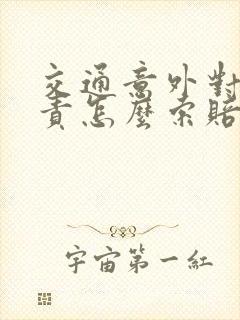 交通意外對
責怎麼索賠
宇宙第一紅